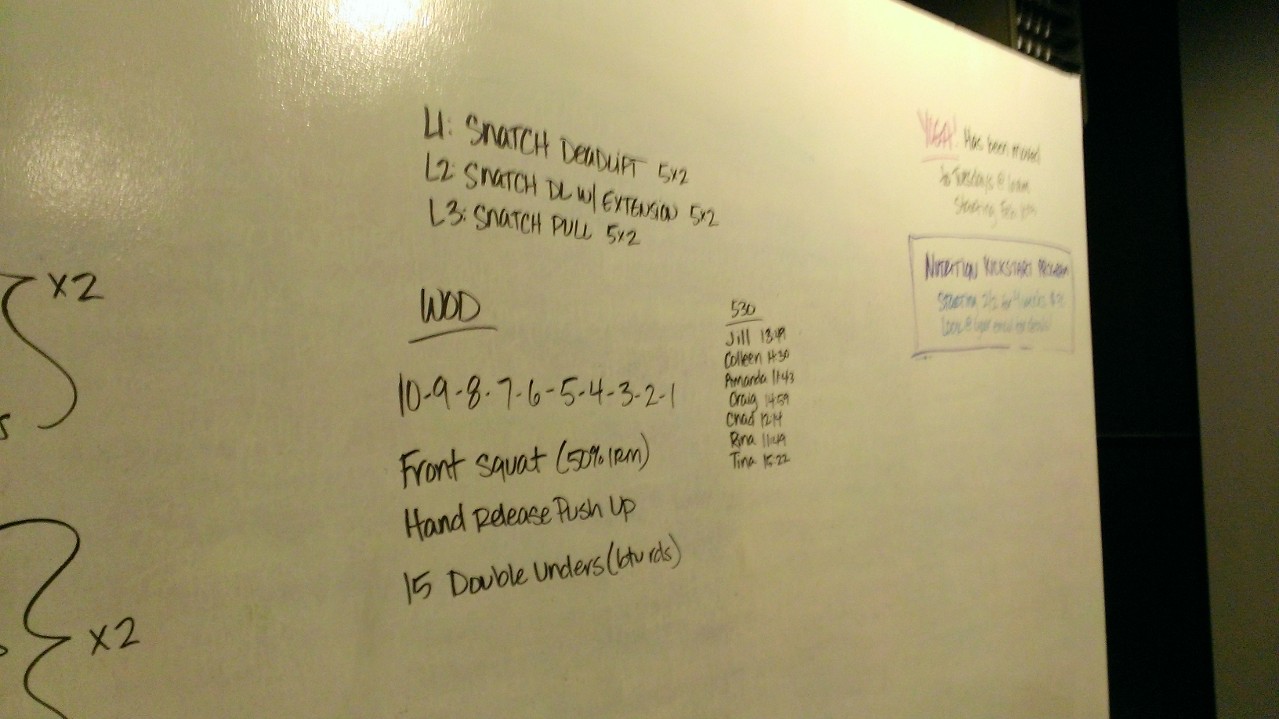 L1: SNATCH DEADLIFT 5x2
L2: SNATCH DL W/ EXTENSION 5x2
L3: SNATCH PULL 5x2
x2
WOD
10-9-8-7-6-5-4-3-2-1
Front Squat (50% 1RM)
Hand Release Push Up
15 Double Unders (btw rds)
x2
530
Jill 13:49
Colleen 14:30
Amanda 11:43
Craig 14:59
Chad 12:14
Rina 11:49
Tina 15:22
YOGA! Has been moved
to Tuesdays @
Starting Feb
NUTRITION KICKSTART PROGRAM
Starting for 4 weeks
Look @ your email for details!